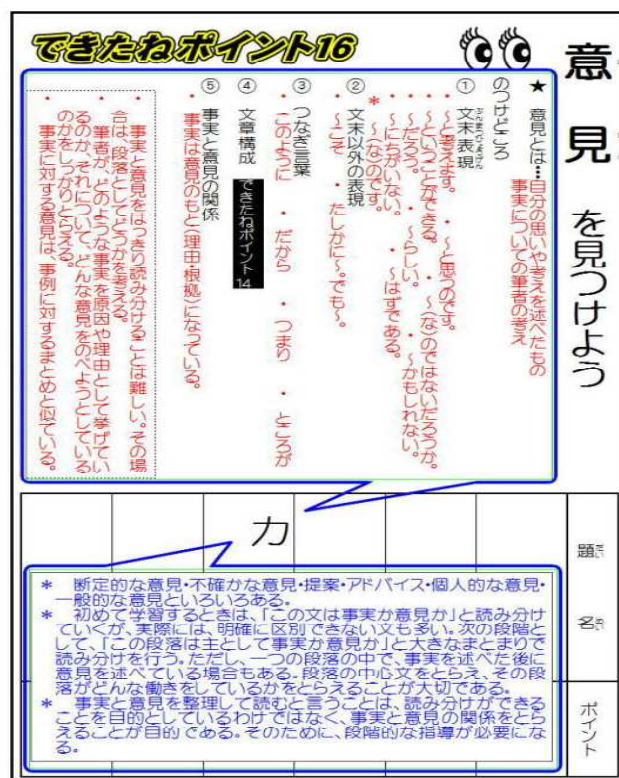 できたねポイント16
意見を見つけよう
★ 意見とは…自分の思いや考えを述べたもの
事実についての筆者の考え
のつけどころ
① 文末表現
ぶんまつひょうげん
・～と考えます。 ・～と思うのです。
・～ということができる。 ・～(な)のではないだろうか。
・～だろう。 ・～らしい。 ・～かもしれない。
・～にちがいない。 ・～はずである。
＊ ～(な)のです。
② 文末以外の表現
・～こそ ・たしかに～。でも～。
③ つなぎ言葉
・このように ・だから ・つまり ・ところが
④ 文章構成 できたねポイント14
⑤ 事実と意見の関係
・事実は意見のもと(理由・根拠)になっている。
・事実と意見をはっきり読み分けることは難しい。その場
合は、段落としてどうかを考える。
・筆者が、どのような事実を原因や理由として挙げてい
るのか、それについて、どんな意見をのべようとしている
のかをしっかりとらえる。
・事実に対する意見は、事例に対するまとめと似ている。
題名
ポイント
力
＊ 断定的な意見・不確かな意見・提案・アドバイス・個人的な意見・
一般的な意見といろいろある。
＊ 初めて学習するときは、「この文は事実か意見か」と読み分け
ていくが、実際には、明確に区別できない文も多い。次の段階と
して、「この段落は主として事実か意見か」と大きなまとまりで
読み分けを行う。ただし、一つの段落の中で、事実を述べた後に
意見を述べている場合もある。段落の中心文をとらえ、その段
落がどんな働きをしているかをとらえることが大切である。
＊ 事実と意見を整理して読むと言うことは、読み分けができる
ことを目的としているわけではなく、事実と意見の関係をとら
えることが目的である。そのために、段階的な指導が必要にな
る。